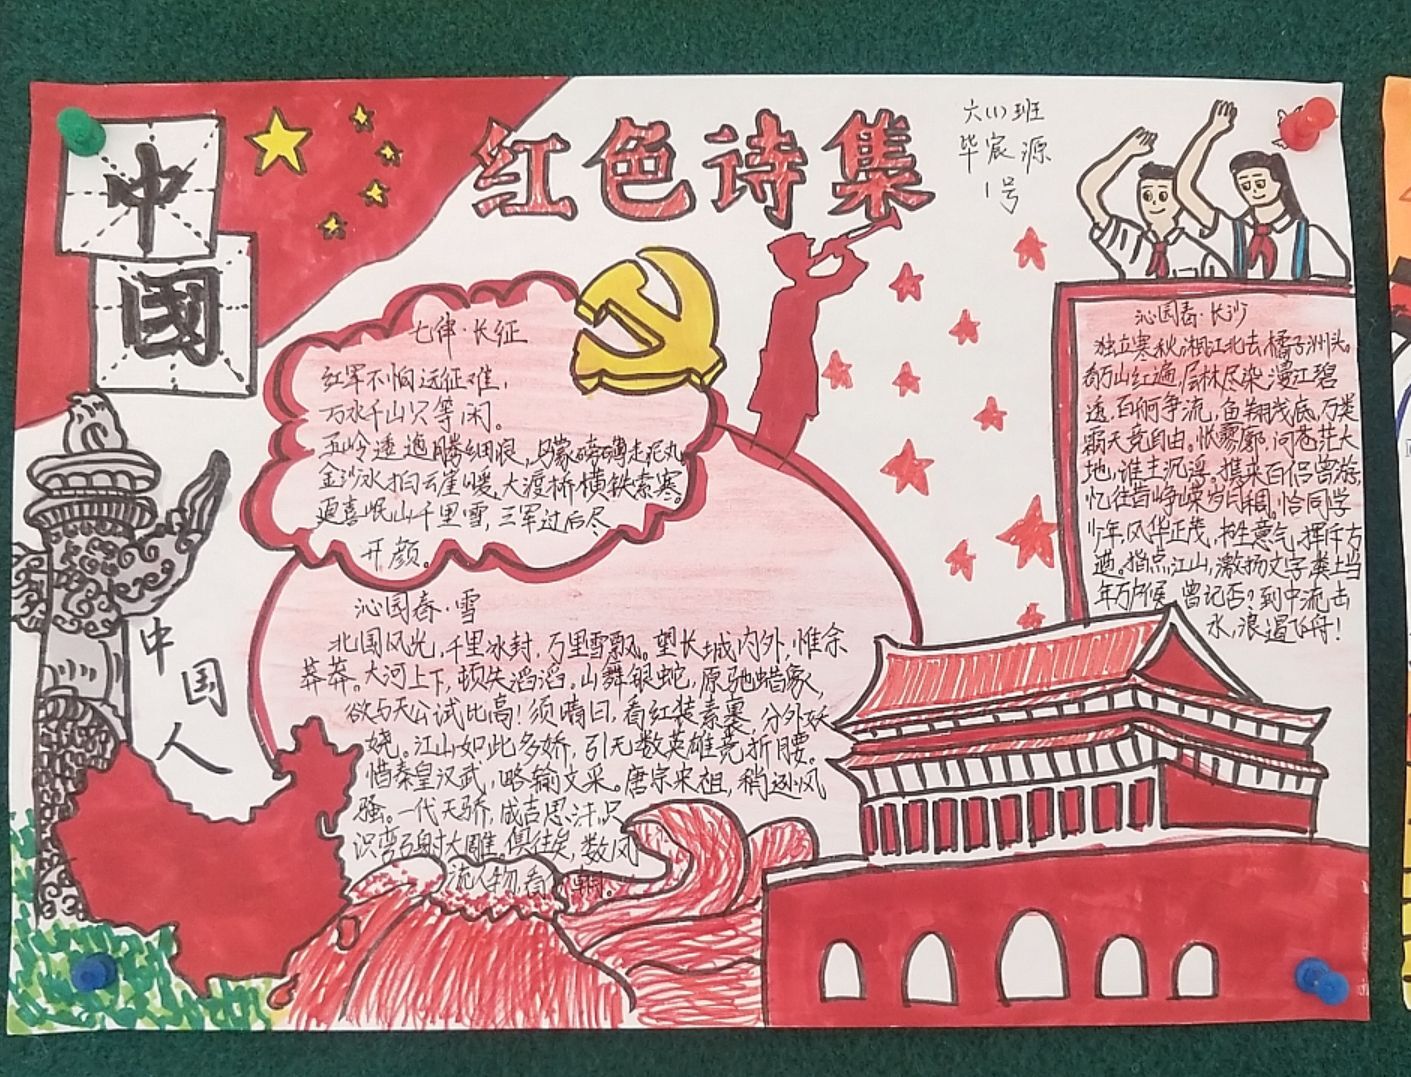 中
国
红色诗集
六(1)班
毕宸源
1号
七律·长征
红军不怕远征难,
万水千山只等闲。
五岭逶迤腾细浪,乌蒙磅礴走泥丸
金沙水拍云崖暖,大渡桥横铁索寒。
更喜岷山千里雪,三军过后尽
开颜。
沁园春·雪
北国风光,千里冰封,万里雪飘。望长城内外,惟余
莽莽。大河上下,顿失滔滔。山舞银蛇,原驰蜡象,
欲与天公试比高!须晴日,看红装素裹,分外妖
娆。江山如此多娇,引无数英雄竞折腰。
惜秦皇汉武,略输文采。唐宗宋祖,稍逊风
骚。一代天骄,成吉思汗,只
识弯弓射大雕。俱往矣,数风
流人物,看 朝。
沁园春·长沙
独立寒秋,湘江北去,橘子洲头。
看万山红遍,层林尽染,漫江碧
透,百舸争流,鱼翔浅底,万类
霜天竞自由。怅寥廓,问苍茫大
地,谁主沉浮。携来百侣曾游,
忆往昔峥嵘岁月稠。恰同学
少年,风华正茂,书生意气,挥斥方
遒。指点,江山,激扬文字,粪土当
年万户侯。曾记否?到中流击
水,浪遏飞舟!
中
国
人